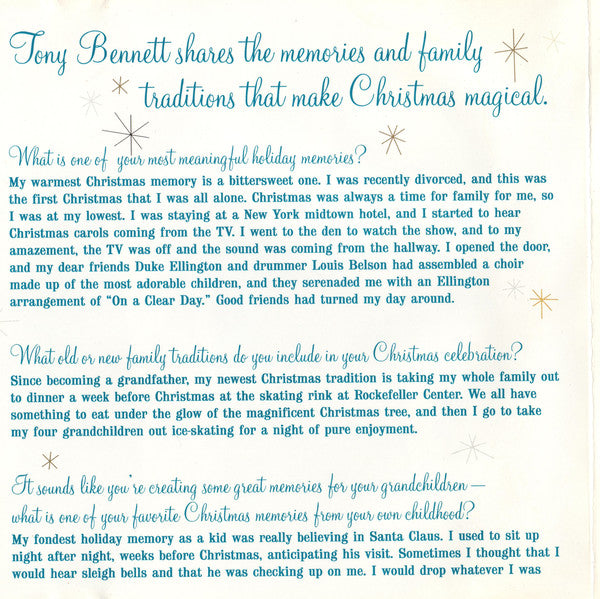 Tony Bennett shares the memories and family
traditions that make Christmas magical.
What is one of your most meaningful holiday memories?
My warmest Christmas memory is a bittersweet one. I was recently divorced, and this was
the first Christmas that I was all alone. Christmas was always a time for family for me, so
I was at my lowest. I was staying at a New York midtown hotel, and I started to hear
Christmas carols coming from the TV. I went to the den to watch the show, and to my
amazement, the TV was off and the sound was coming from the hallway. I opened the door,
and my dear friends Duke Ellington and drummer Louis Belson had assembled a choir
made up of the most adorable children, and they serenaded me with an Ellington
arrangement of “On a Clear Day.” Good friends had turned my day around.
What old or new family traditions do you include in your Christmas celebration?
Since becoming a grandfather, my newest Christmas tradition is taking my whole family out
to dinner a week before Christmas at the skating rink at Rockefeller Center. We all have
something to eat under the glow of the magnificent Christmas tree, and then I go to take
my four grandchildren out ice-skating for a night of pure enjoyment.
It sounds like you're creating some great memories for your grandchildren —
what is one of your favorite Christmas memories from your own childhood?
My fondest holiday memory as a kid was really believing in Santa Claus. I used to sit up
night after night, weeks before Christmas, anticipating his visit. Sometimes I thought that I
would hear sleigh bells and that he was checking up on me. I would drop whatever I was